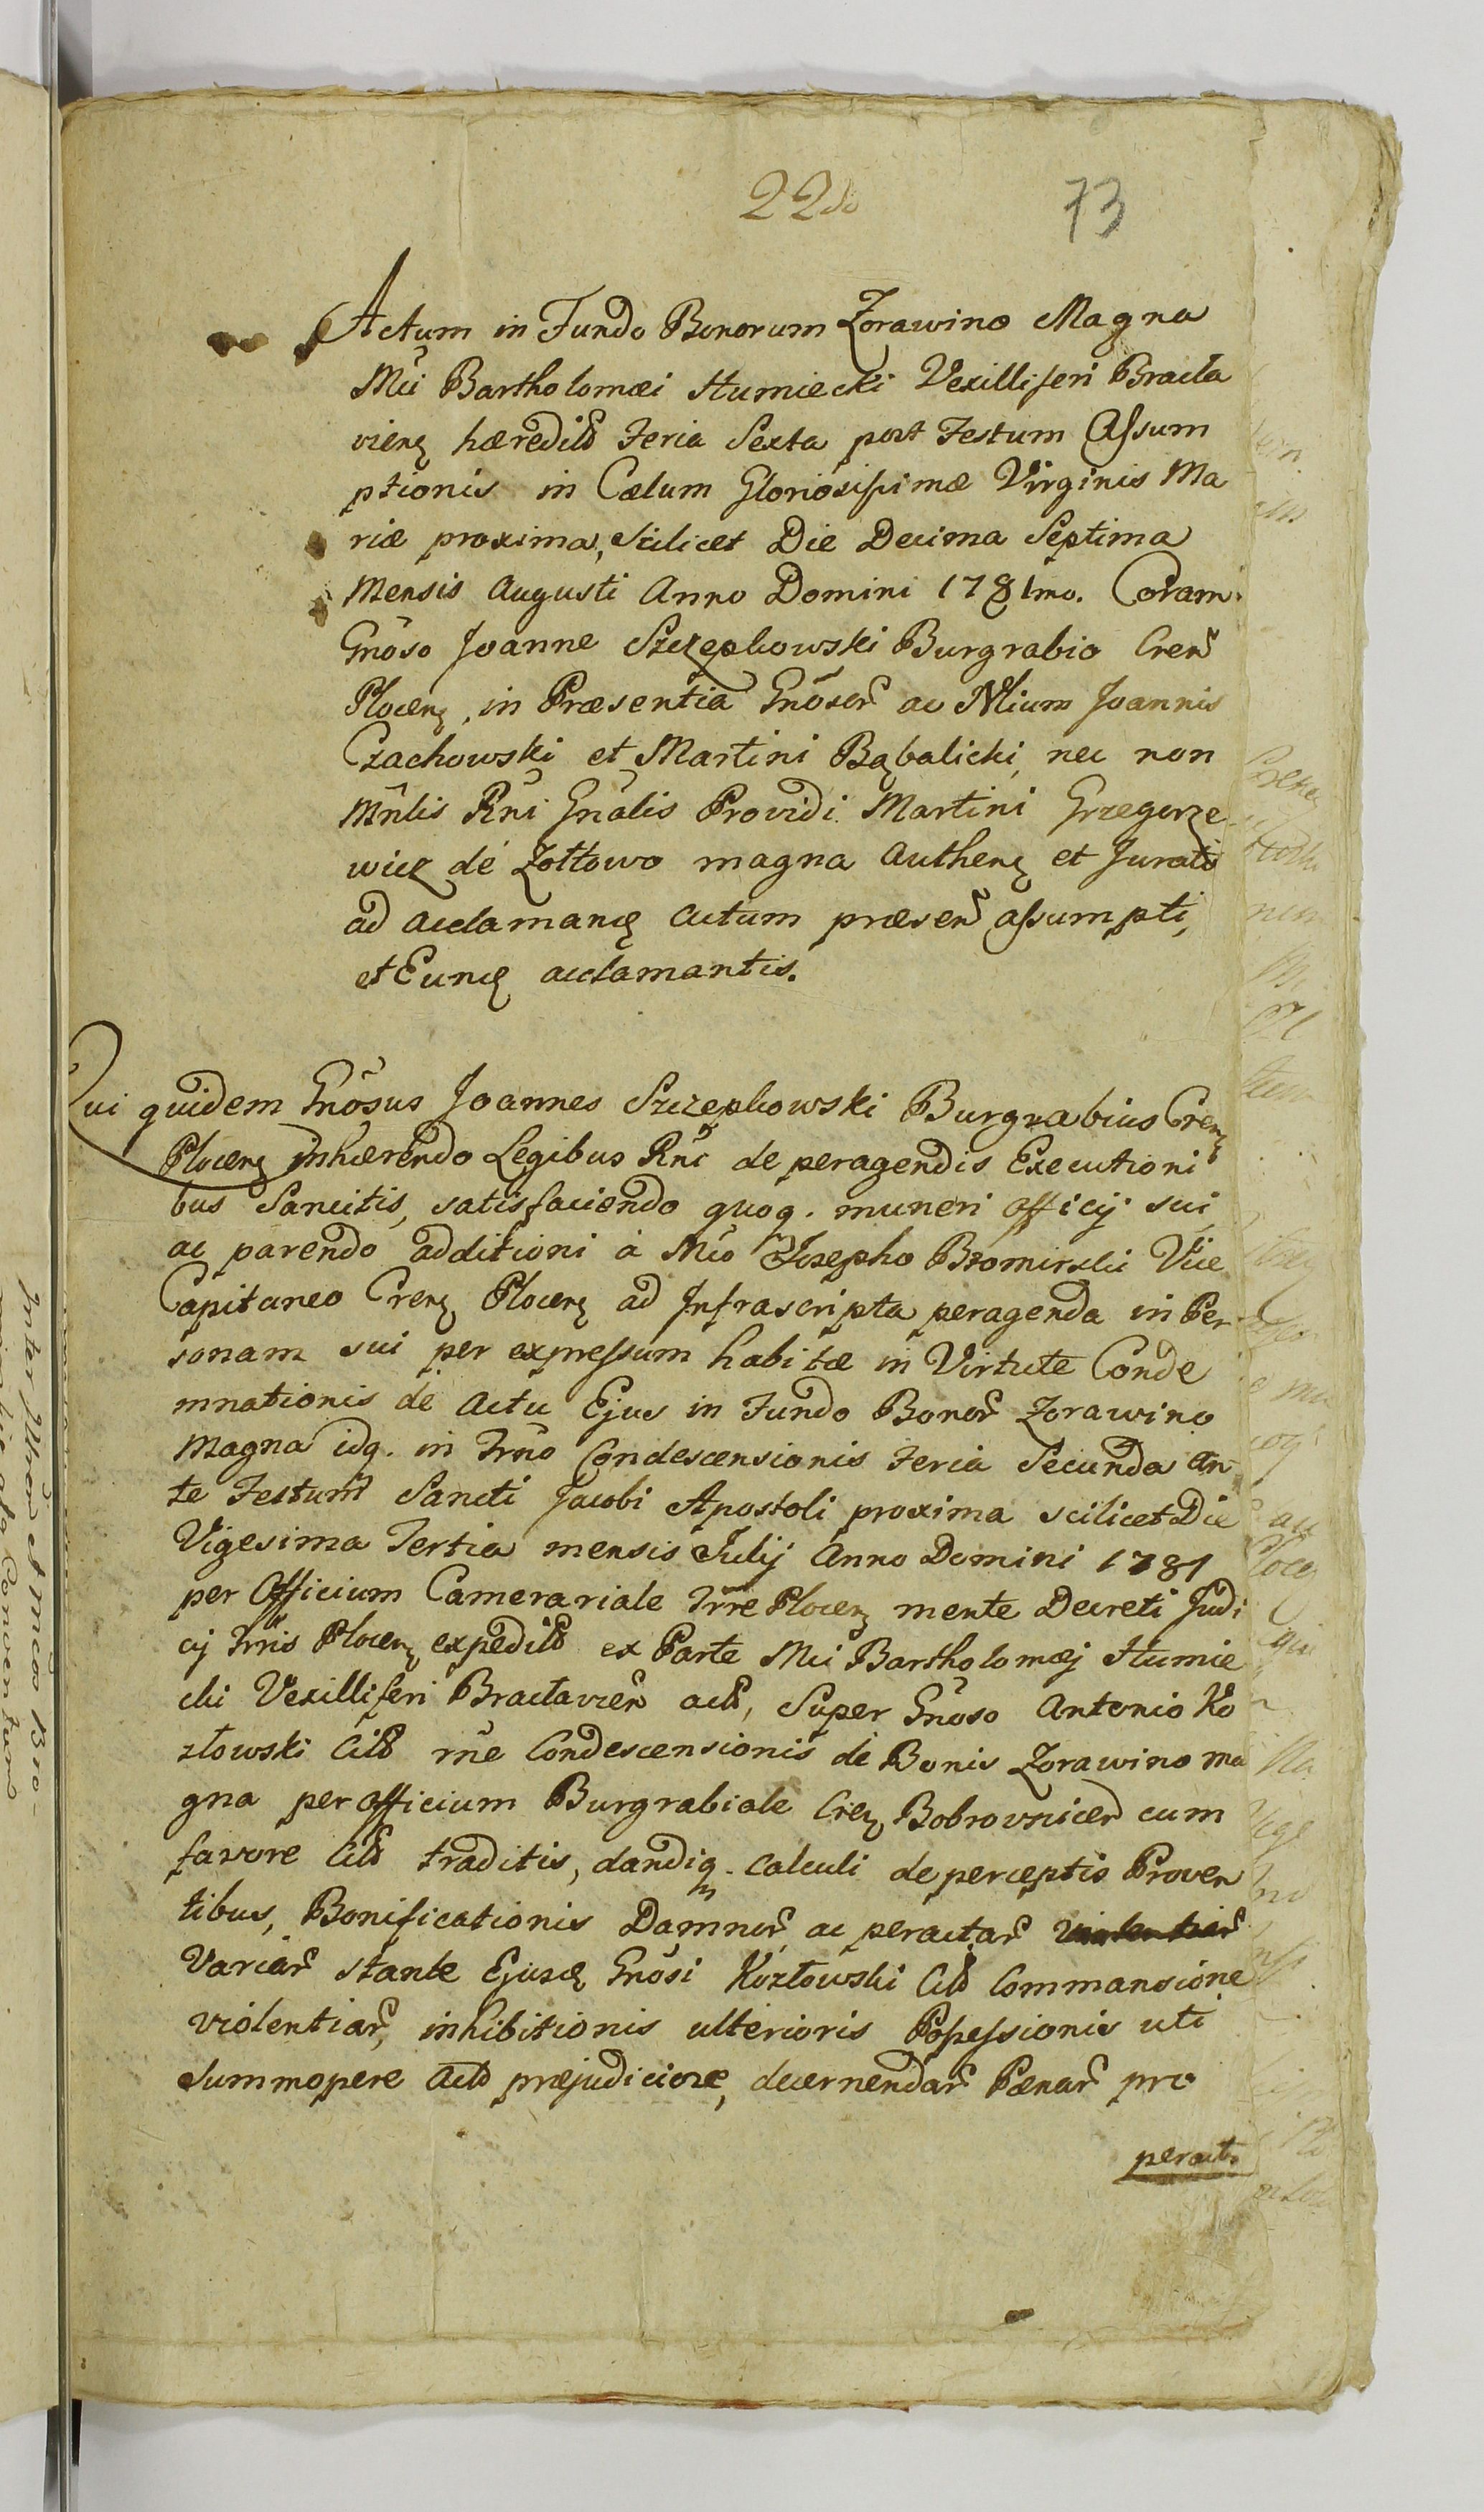 22do
73
Actum in Fundo Bonorum Zorawino Magna
Mci Bartholomæi Humiecki Vexilliferi Bracla
vienꝫ hæredit̃ Feria Sexta post Festum Assum
ptionis in Cælum Gloriosissimæ Virginis Ma
riæ proxima, scilicet Die Decima Septima
Mensis Augusti Anno Domini 1781mo. Coram
Gnõso Joanne Szczepkowski Burgrabio Creñ
Plocenꝫ, in Præsentia Gnõsor̃ ac Nlium Joannis
Czachowski et Martini Bąbalicki, nec non
Mñlis Rñi Gñalis Providi Martini Grzegorze
wicz de Zottowo magna Authenꝫ et Jurati
ad acclamanꝫ actum præseñ assumpti,
et Euncꝫ acclamantis.
Qui quidem Gnõsus Joannes Szczepkowski Burgrabius Crenꝫ
Plocenꝫ inhærendo Legibus Rñi de peragendis Executioni
bus Sancitis, satisfaciendo quoq. muneri officij sui,
ac parendo additioni à Mco Josepho Bromirski Vice
Capitaneo Crenꝫ Plocenꝫ ad Infrascripta peragenda in Per
sonam sui per expressum habitæ in Virtute Conde
mnationis de actu Ejus in Fundo Bonor̃ Zorawino
Magna idq. in Trño Condescensionis Feria Secunda an
te Festum Sancti Jacobi Apostoli proxima scilicet Die
Vigesima Tertia mensis Julij Anno Domini 1781
per Officium Camerariale Trre Plocenꝫ mente Decreti Judi
cij Trris Plocenꝫ expedit̃ ex Parte Mci Bartholomæj Humie
cki Vexilliferi Braclavieñ act̃, Super Gnõso Antonio Ko
złowski Cit̃ rñe Condescensionis de Bonis Zorawino ma
gna per officium Burgrabiale Crenꝫ Bobrovniceñ cum
favore Cit̃ traditis, dandiq. calculi de perceptis Proven
tibus, Bonificationis Damnor̃ ac peractar̃ violentiar̃
Variar̃ stante Ejusdꝫ Gnõsi Kozłowski Cit̃ Commansione
violentiar̃, inhibitionis ulterioris Possessionis uti
summopere Act̃ præjudiciosæ, decernendar̃ Pænar̃ pro
peract.
Inter
et Mcos Bro-
Conventum